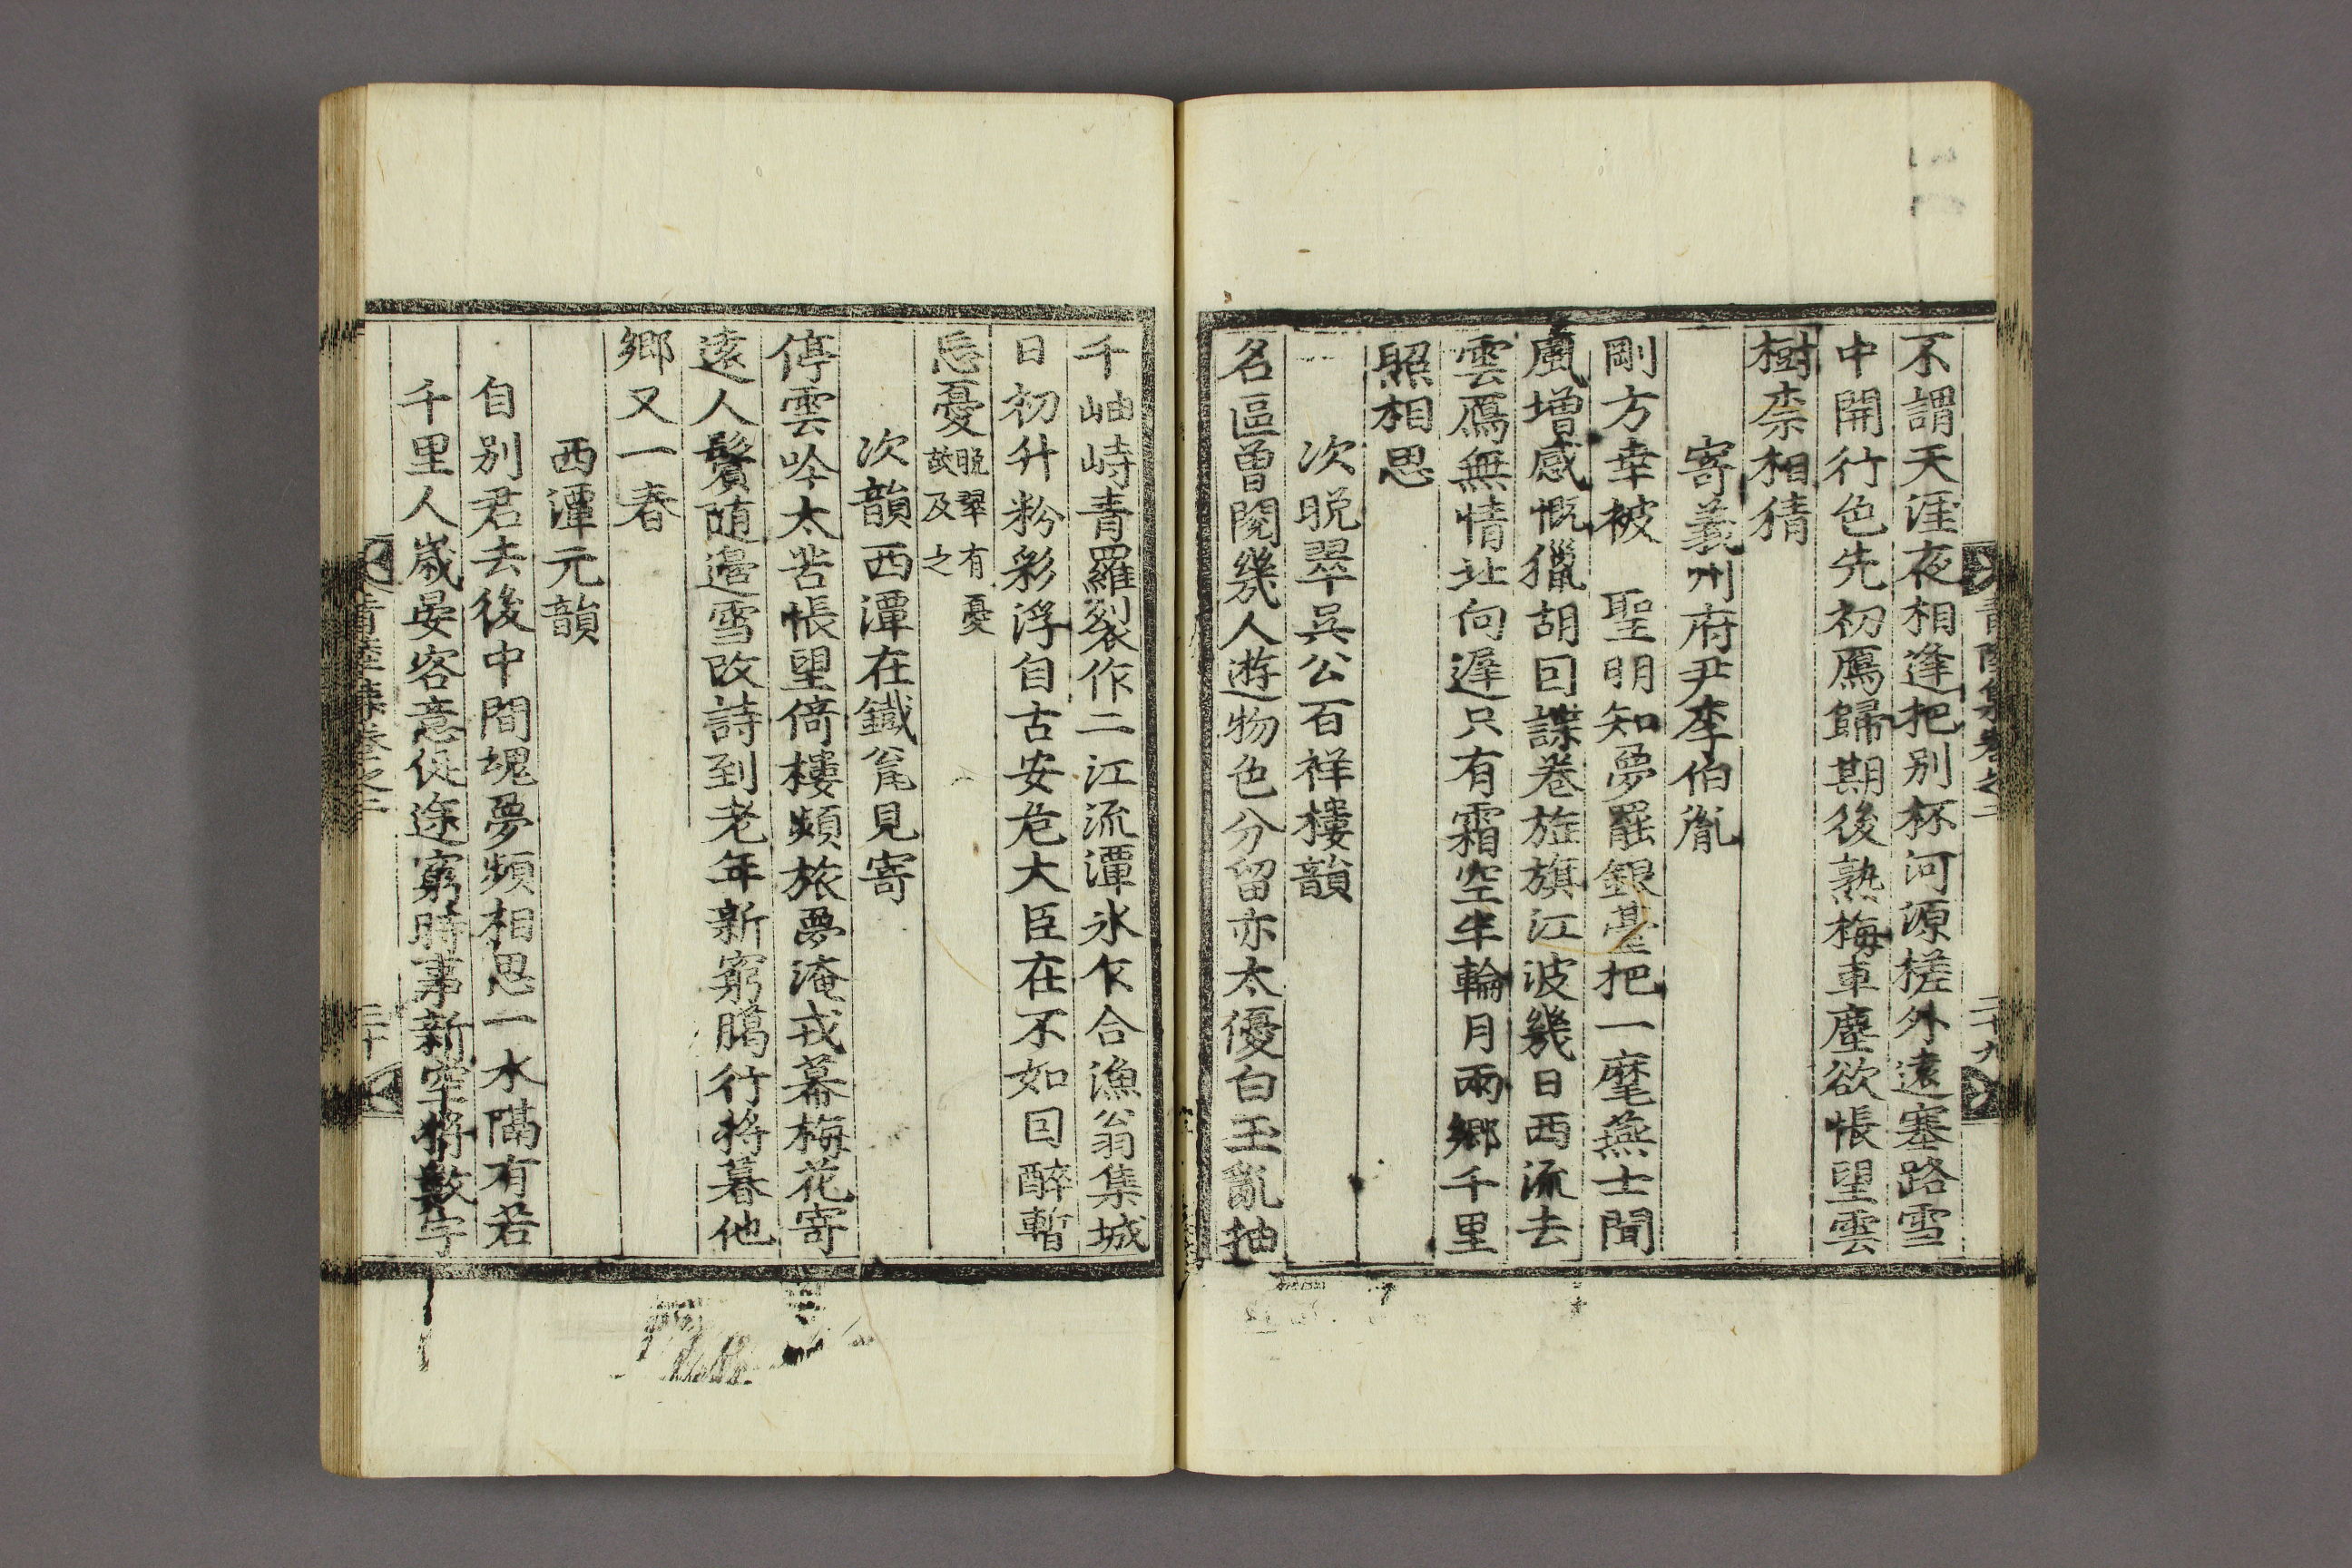 不謂天涯夜相逢把别杯河源槎外遠塞路雪
中開行色先初鴈歸期後熟梅車塵欲悵望雲
樹柰相猜
寄義州府尹李伯胤
剛方幸被 聖明知夢罷銀臺把一麾燕士聞
風增感慨獵胡回諜卷旌旗江波幾日西流去
雲鴈無情北向遲只有霜空半輪月兩鄉千里
照相思
次晩翠吳公百祥樓韻
名區曾閱幾人遊物色分留亦太優白玉亂抽
千岫峙青羅裂作二江流潭氷乍合漁翁集城
日初升粉彩浮自古安危大臣在不如回醉暫
忘憂晩翠有憂
故及之
次韻西潭在鐵瓮見寄
停雲吟太苦悵望倚樓頻旅夢淹戎幕梅花寄
遠人鬢随邊雪改詩到老年新窮臈行將暮他
鄉又一春
西潭元韻
自别君去後中間塊夢頻相思一水隔有若
千里人歲晏客意促途窮時事新空將數字
青陸集卷之二
二十九
三十